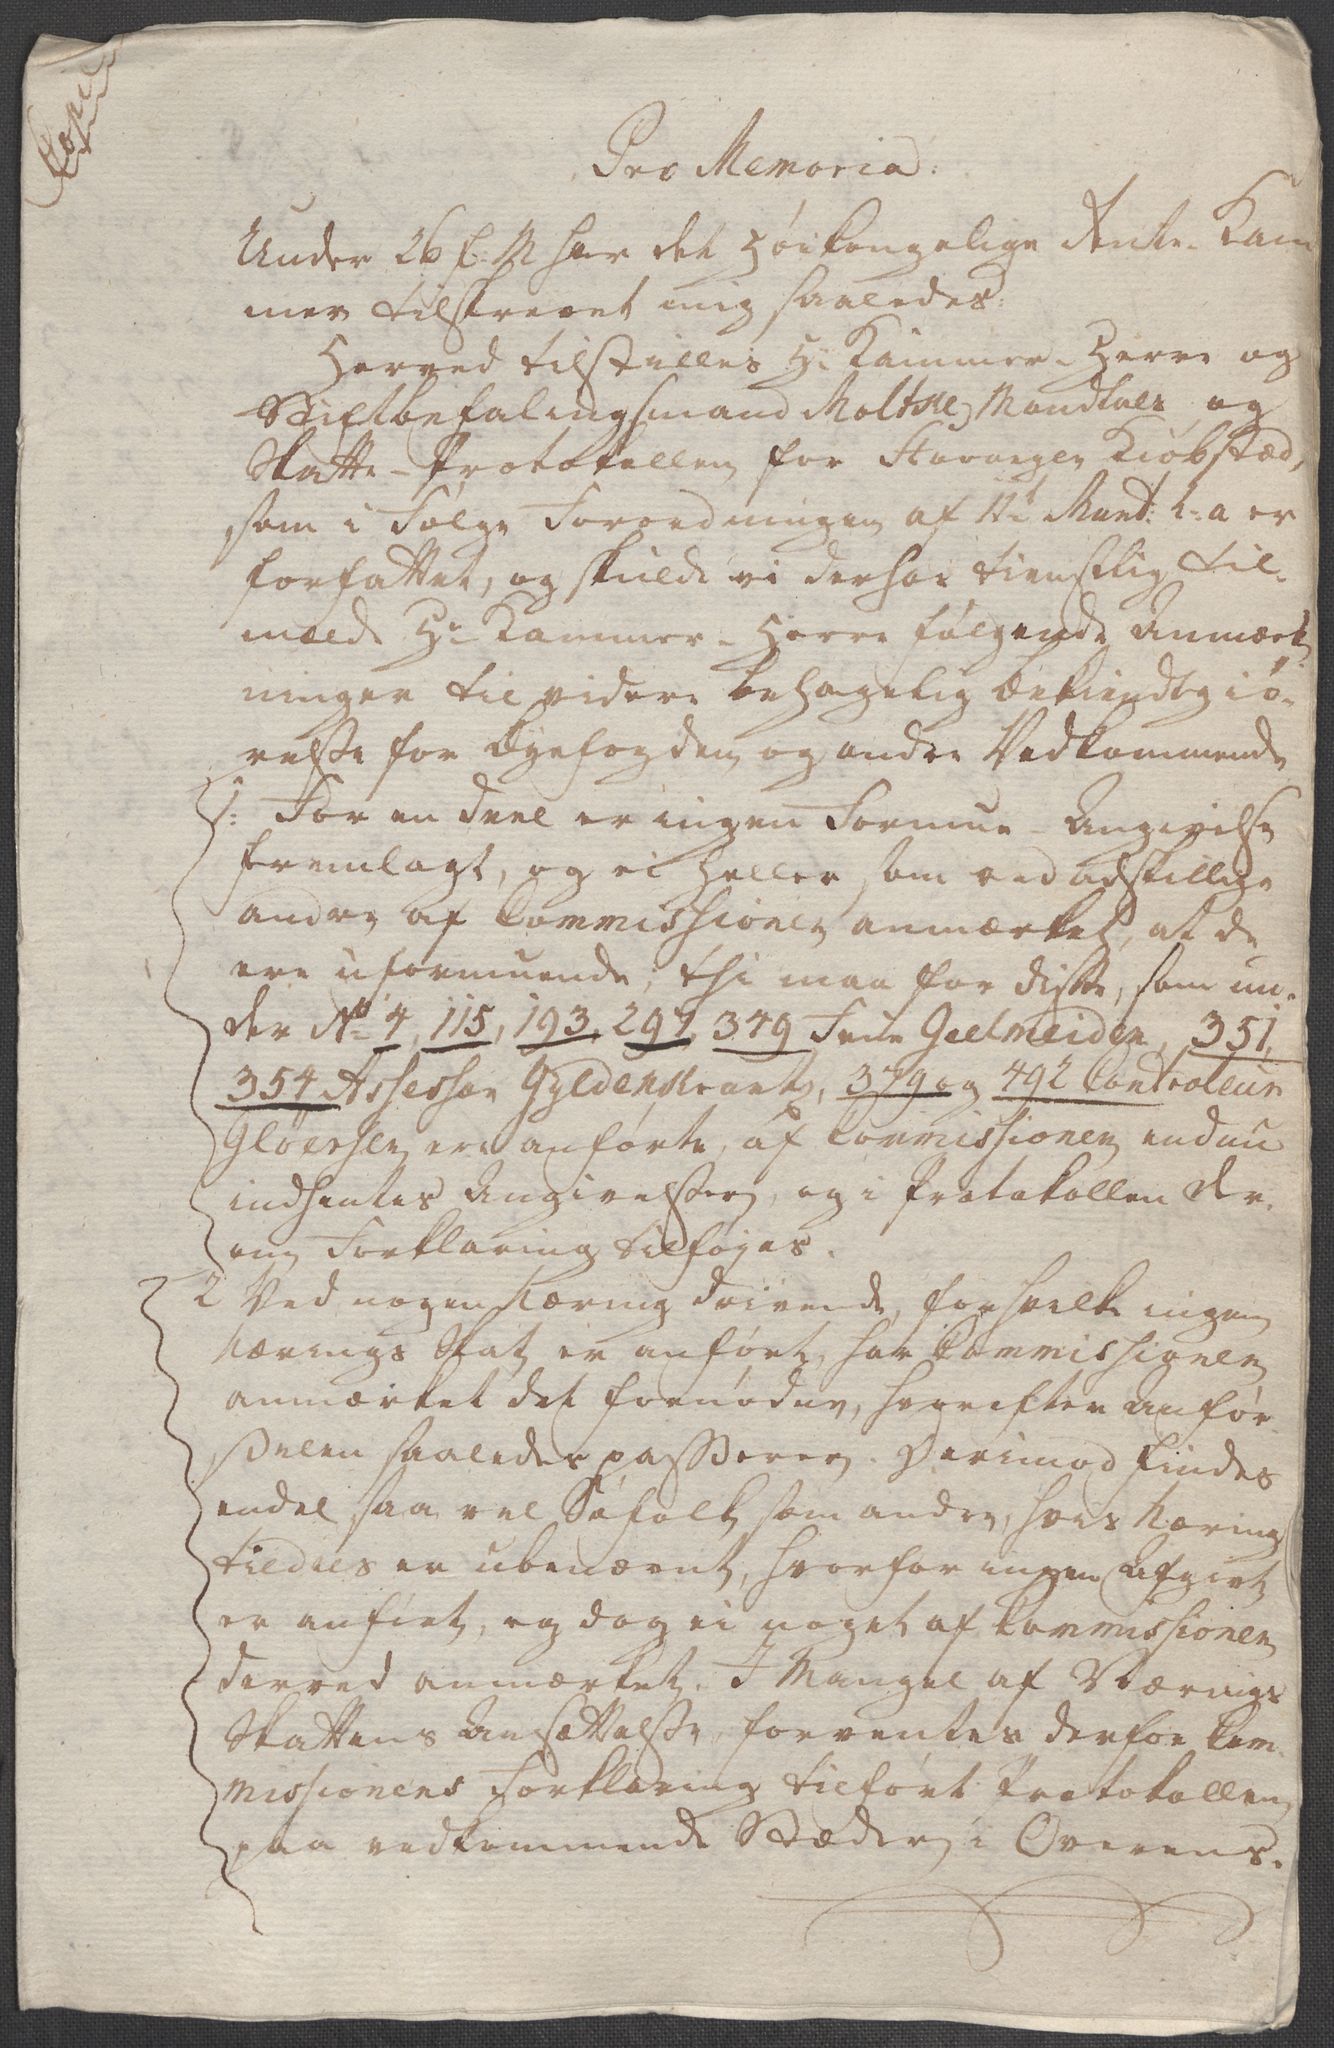 Copie
Pro Memoria:
Under 26 f: M har det Høikongelige Rente-Kam
mer tilskrevet mig saaledes:
Herved tilstilles Hr Kammer-Herre og
Stiftbefalingsmand Moltke, Mandtals og
Skatte-Protokollen for Stavanger Kiøbstæd,
som i Følge Forordningen af Mart: h: a er
forfattet, og skulde vi derhos tienstlig til-
melde Hr Kammer-Herre følgende Anmærk-
ninger til videre behagelig Bekiendtgiø-
relse for Byefogden og andre Vedkommende
1: For en deel er ingen Formue-Angivelse
fremlagt, og ei heller som ved adskillige
andre af Commissionen anmærket, at de
ere uformuende; thi maa for disse, som un-
der No 4, 115, 193, 297, 349 Frue Geelmeiden, 351,
354 Assessor Gyldenkrantz, 379 og 492 Controleur
Gløersen ere anførte, af Commissionen endnu
indhentes Angivelser, og i Protokollen der-
om Forklaring tilføjes.
2 Ved nogen Næring drivende, for hvilke ingen
Nærings Skat er anført, har Commissionen
anmærket det fornødne, hvorefter Anfør-
selen saaledes passerer. Derimod findes
endel saa vel Søfolk som andre, hvis Næring
tildels er ubenævnt, hvorfor ingen Afgivt
er anført, og dog ei noget af Commissionen
derved anmærket. I Mangel af Nærings
Skattens Ansættelse, forventes derfor Com-
missionens Forklaring tilført Protokollen
paa vedkommende Stæder, i Overens-